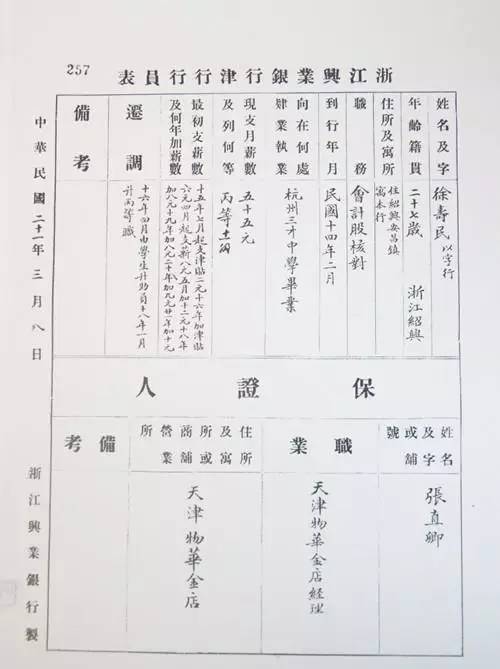 257
浙江興業銀行津行行員表
姓名及字
徐壽民 以字行
年齡籍貫
二十七歲 浙江紹興
住所及寓所
住紹興安昌鎮
寓本行
職務
會計股核對
到行年月
民國十四年二月
向在何處
肄業執業
杭州三才中學畢業
現支月薪數
及列何等
五十五元
丙等土級
最初支薪數
及何年加薪數
十五年七月起支津貼二元十六年加津貼
六元四月起支薪八元五月加十二元十八年
加八元十九年加八元二十年加九元廿一年加十元
遷調
十六年四月由學生升助員十八年一月
升丙等職
備考
中華民國二十一年三月八日
保證人
姓名
及字
或舖
號
張直卿
職業
天津物華金店經理
住所
及寓
所或
商舖
營業
所
天津物華金店
備考
浙江興業銀行製